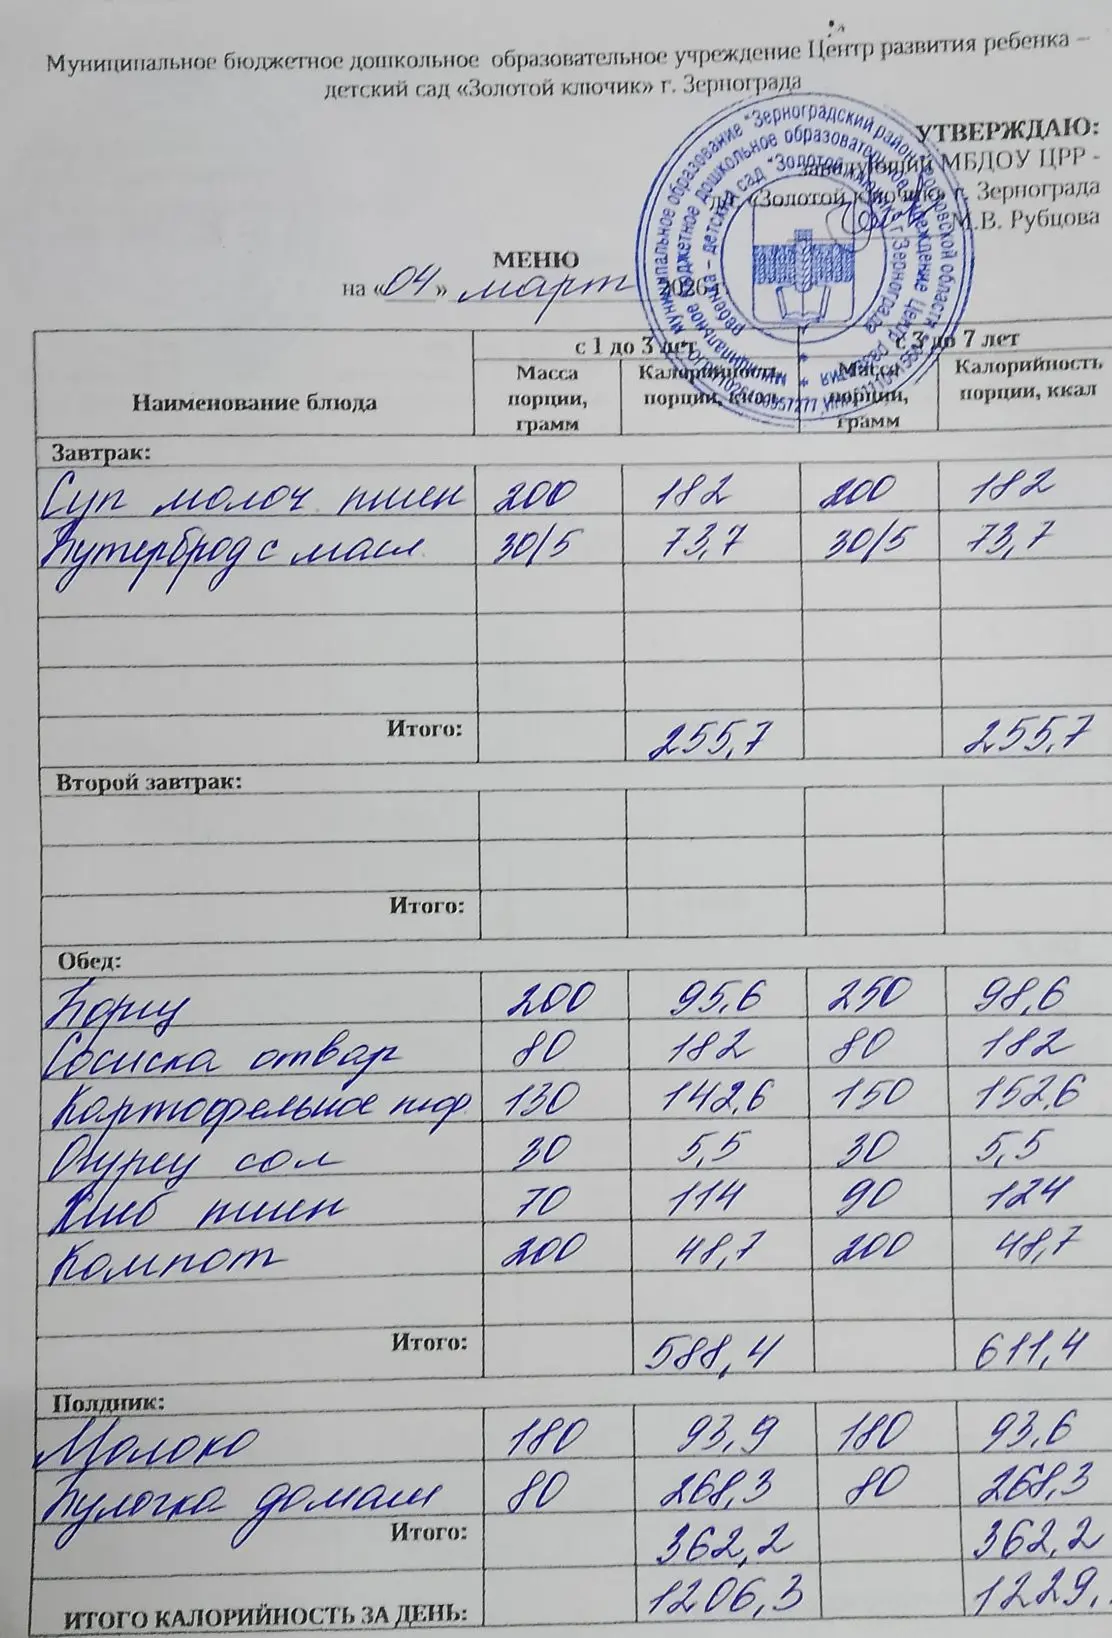 Муниципальное бюджетное дошкольное образовательное учреждение Центр развития ребенка –
детский сад «Золотой ключик» г. Зернограда
УТВЕРЖДАЮ:
заведующий МБДОУ ЦРР -
«Золотой ключик» г. Зернограда
М.В. Рубцова
МЕНЮ
на «04» март 2026 г
Наименование блюда с 1 до 3 лет с 3 до 7 лет
Масса порции, грамм Калорийность порции, ккал Масса порции, грамм Калорийность порции, ккал
Завтрак:
Суп молоч. пшен 200 182 200 182
Бутерброд с масл. 30/5 73,7 30/5 73,7
Итого: 255,7 255,7
Второй завтрак:
Итого:
Обед:
Борщ 200 95,6 250 98,6
Сосиска отвар 80 182 80 182
Картофельное пюр. 130 142,6 150 152,6
Огурец сол 30 5,5 30 5,5
Хлеб пшен 70 114 90 124
Компот 200 48,7 200 48,7
Итого: 588,4 611,4
Полдник:
Молоко 180 93,9 180 93,6
Булочка домаш 80 268,3 80 268,3
Итого: 362,2 362,2
ИТОГО КАЛОРИЙНОСТЬ ЗА ДЕНЬ: 1206,3 1229,